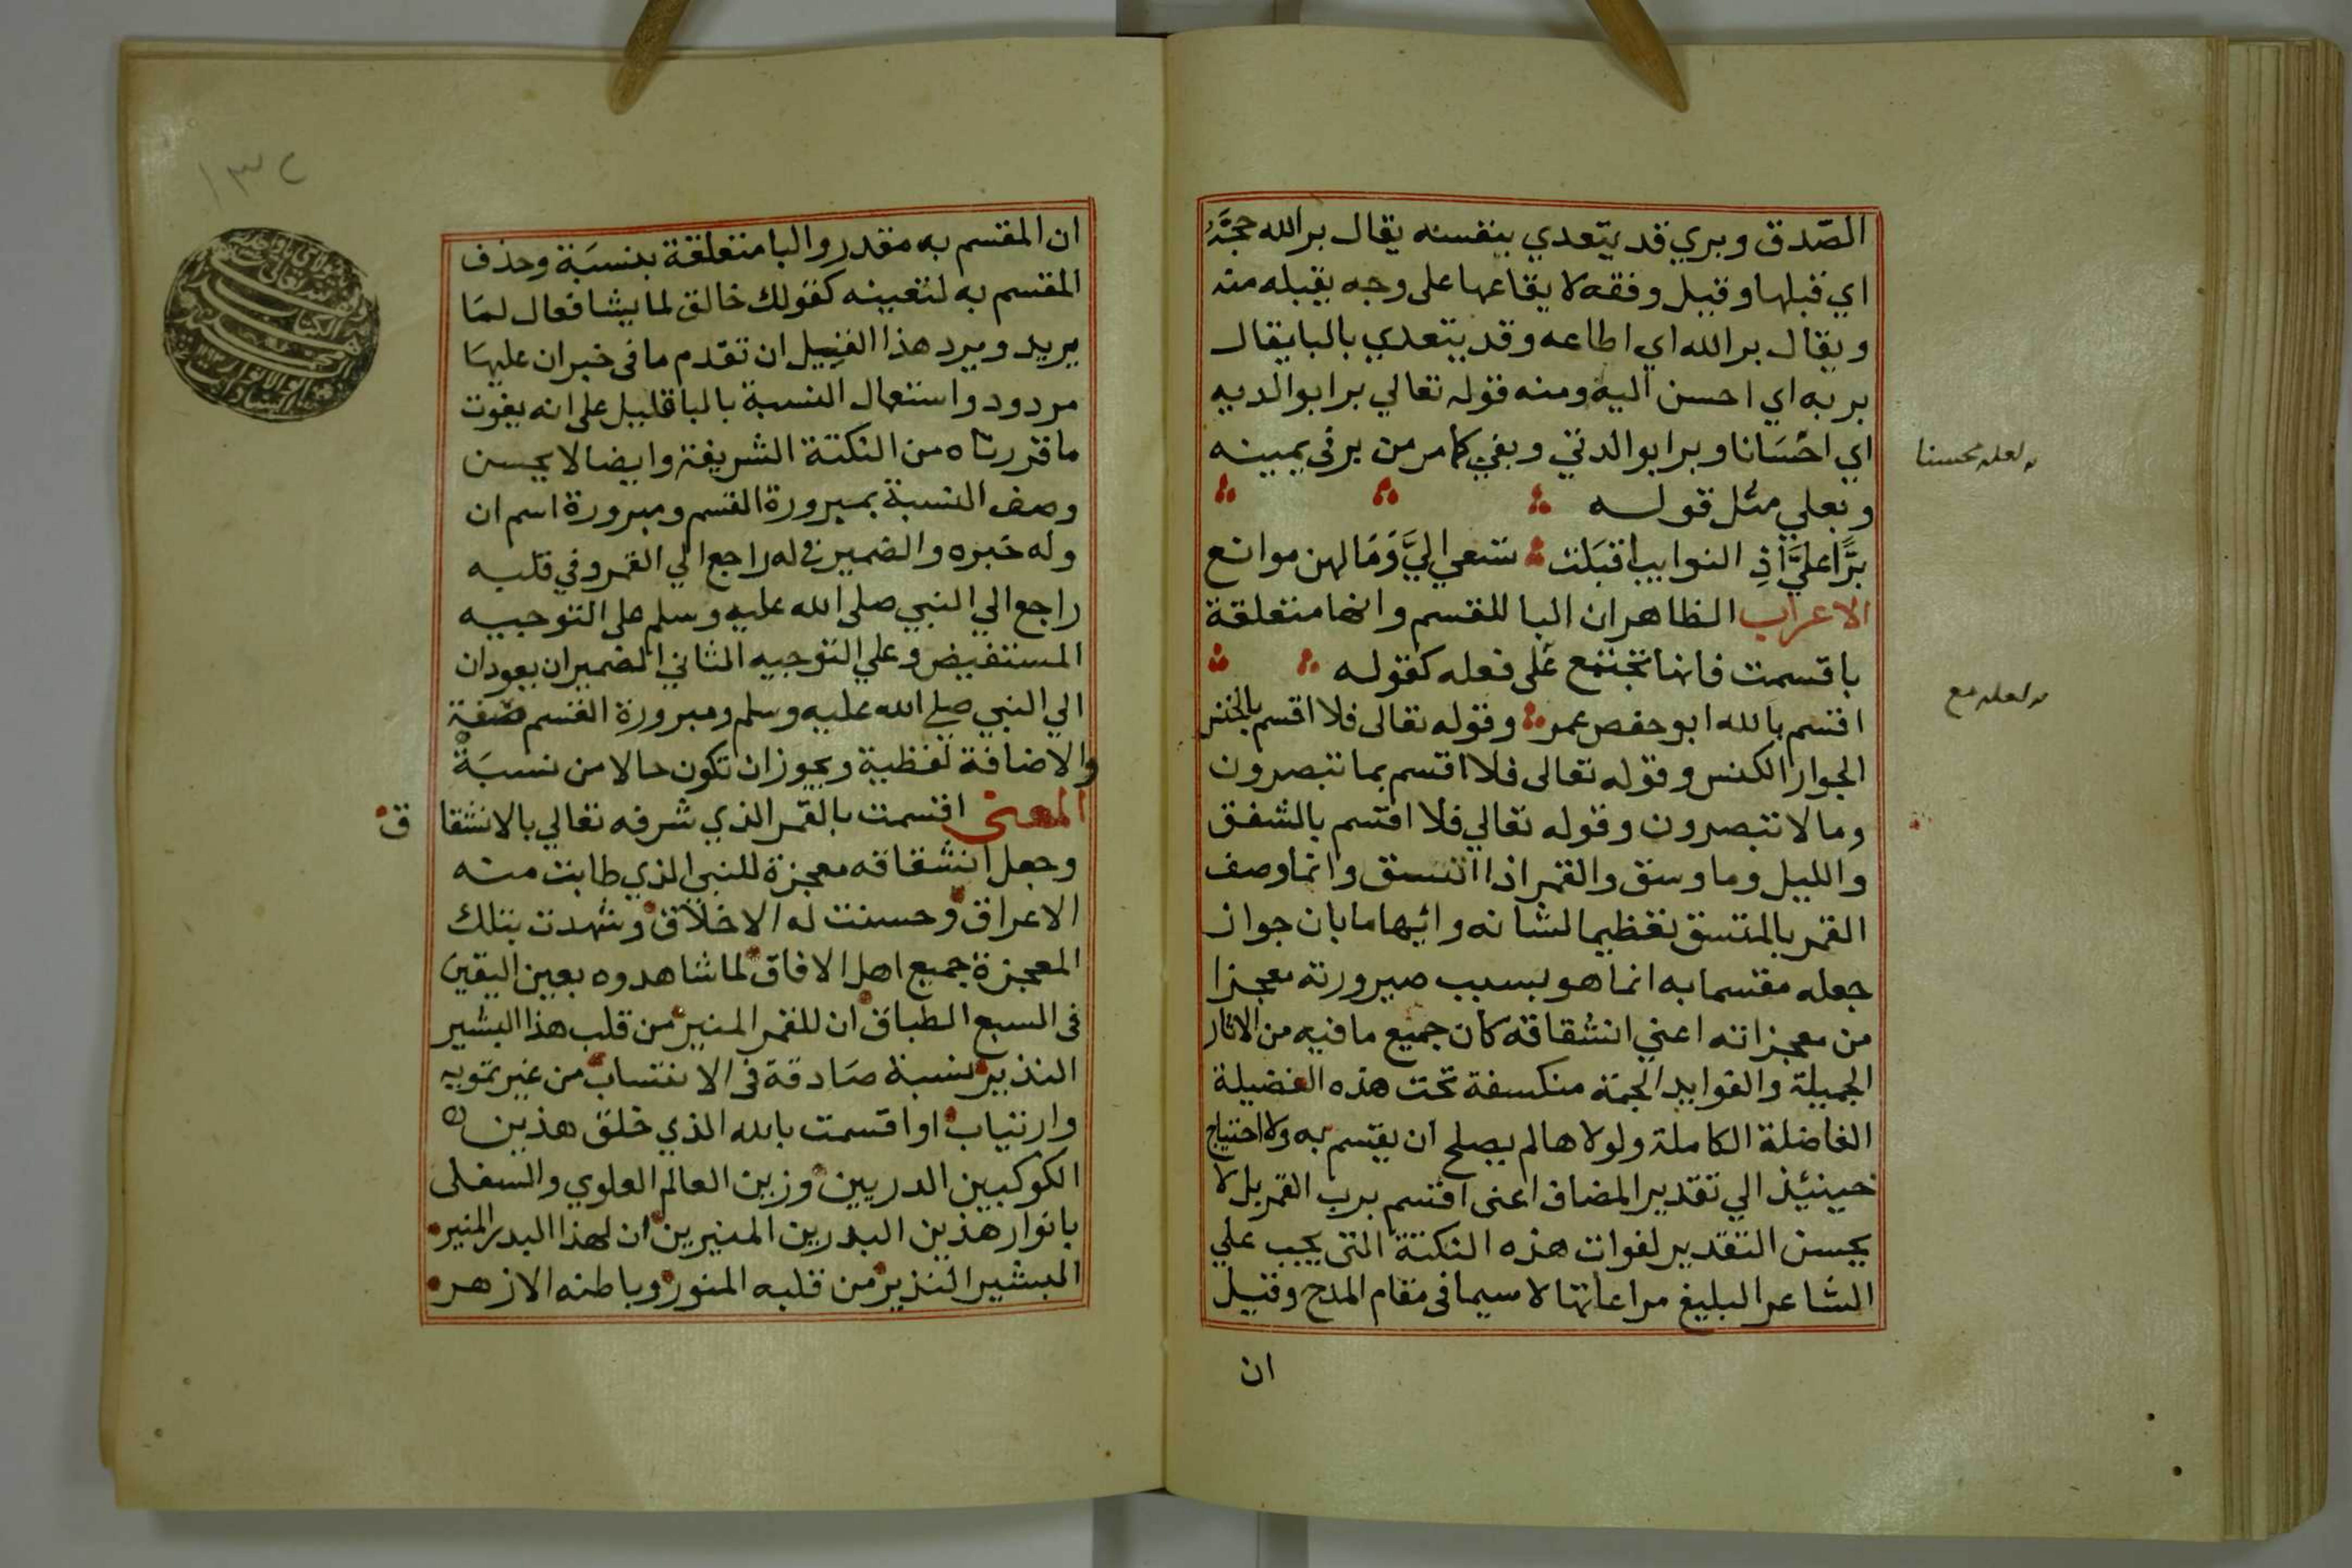 الصّدق وبري قد يتعدي بنفسه يقال بر الله حجته
اي قبلها وقيل وفقه لايقاعها على وجه يقبله منه
ويقال بر الله اي اطاعه وقد يتعدي بالبا يقال
بر به اي احسن اليه ومنه قوله تعالي برا بوالديه
اي احسانا وبرا بوالدتي وبفي كما مر من بر في يمينه
لعله محسنا
وبعلي مثل قوله
برًّا عليَّ اذِ النوايب اقبَلت تسعي اليَّ وَمَا لهن موانع
الاعراب الظاهر ان البا للقسم وانها متعلقة
باقسمت فانها تجتمع على فعله كقوله
لعله مع
اقسم بالله ابو حفص عمر وقوله تعالى فلا اقسم بالخنس
الجوار الكنس وقوله تعالى فلا اقسم بما تبصرون
وما لا تبصرون وقوله تعالي فلا اقسم بالشفق
والليل وما وسق والقمر اذا اتسق وانما وصف
القمر بالمتسق تعظيما لشانه وايهاما بان جواز
جعله مقسما به انما هو بسبب صيرورته معجزا
من معجزاته اعني انشقاقه كان جميع ما فيه من الاثار
الجميلة والفوايد الجمة منكسفة تحت هذه الفضيلة
الفاضلة الكاملة ولولاها لم يصلح ان يقسم به ولا احتياج
حينئذ الي تقدير المضاف اعنى اقسم برب القمر بل لا
يحسن التقدير لفوات هذه النكتة التى يجب علي
الشاعر البليغ مراعاتها لا سيما فى مقام المدح وقيل
ان
١٣٢
ان المقسم به مقدر والبا متعلقة بنسَبة وحذف
المقسم به لتعينه كقولك خالق لما يشا فعال لمَا
يريد ويرد هذا القيل ان تقدم ما فى خبر ان عليهَا
مردود واستعمال النسبة بالبا قليل على انه يفوت
ما قررناه من النكتة الشريفة وايضا لا يحسن
وصف النسبة بمبرورة القسم ومبرورة اسم ان
وله خبره والضمير في له راجع الي القمر وفي قلبه
راجع الي النبي صلى الله عليه وسلم على التوجيه
المستفيض وعلي التوجيه الثاني الضميران يعودان
الي النبي صلي الله عليه وسلم ومبرورة القسم صفة
والاضافة لفظية ويجوز ان تكون حالا من نسبَة
المعنى اقسمت بالقمر الذي شرفه تعالي بالانشقا ق
وجعل انشقاقه معجزة للنبي الذي طابت منه
الاعراق وحسنت له الاخلاق وشهدت بتلك
المعجزة جميع اهل الافاق لما شاهدوه بعين اليقين
فى السبع الطباق ان للقمر المنير من قلب هذا البشير
النذير نسبة صَادقة فى الانتساب من غير تمويه
وارتياب او اقسمت بالله الذي خلق هذين
الكوكبين الدريين وزين العالم العلوي والسفلى
بانوار هذين البدرين المنيرين ان لهذا البدر المنير
المبشير النذير من قلبه المنور وباطنه الازهر